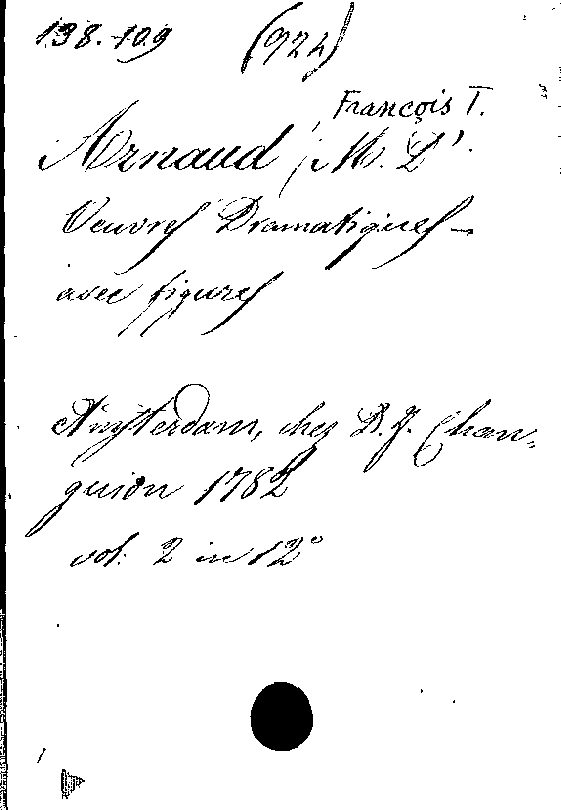 138.-109 (924)
François T.
Arnaud, M. D'.
Oeuvres Dramatiques —
avec figures
Amsterdam, chez D. J. Chan-
guion 1782
vol: 2 in 12°